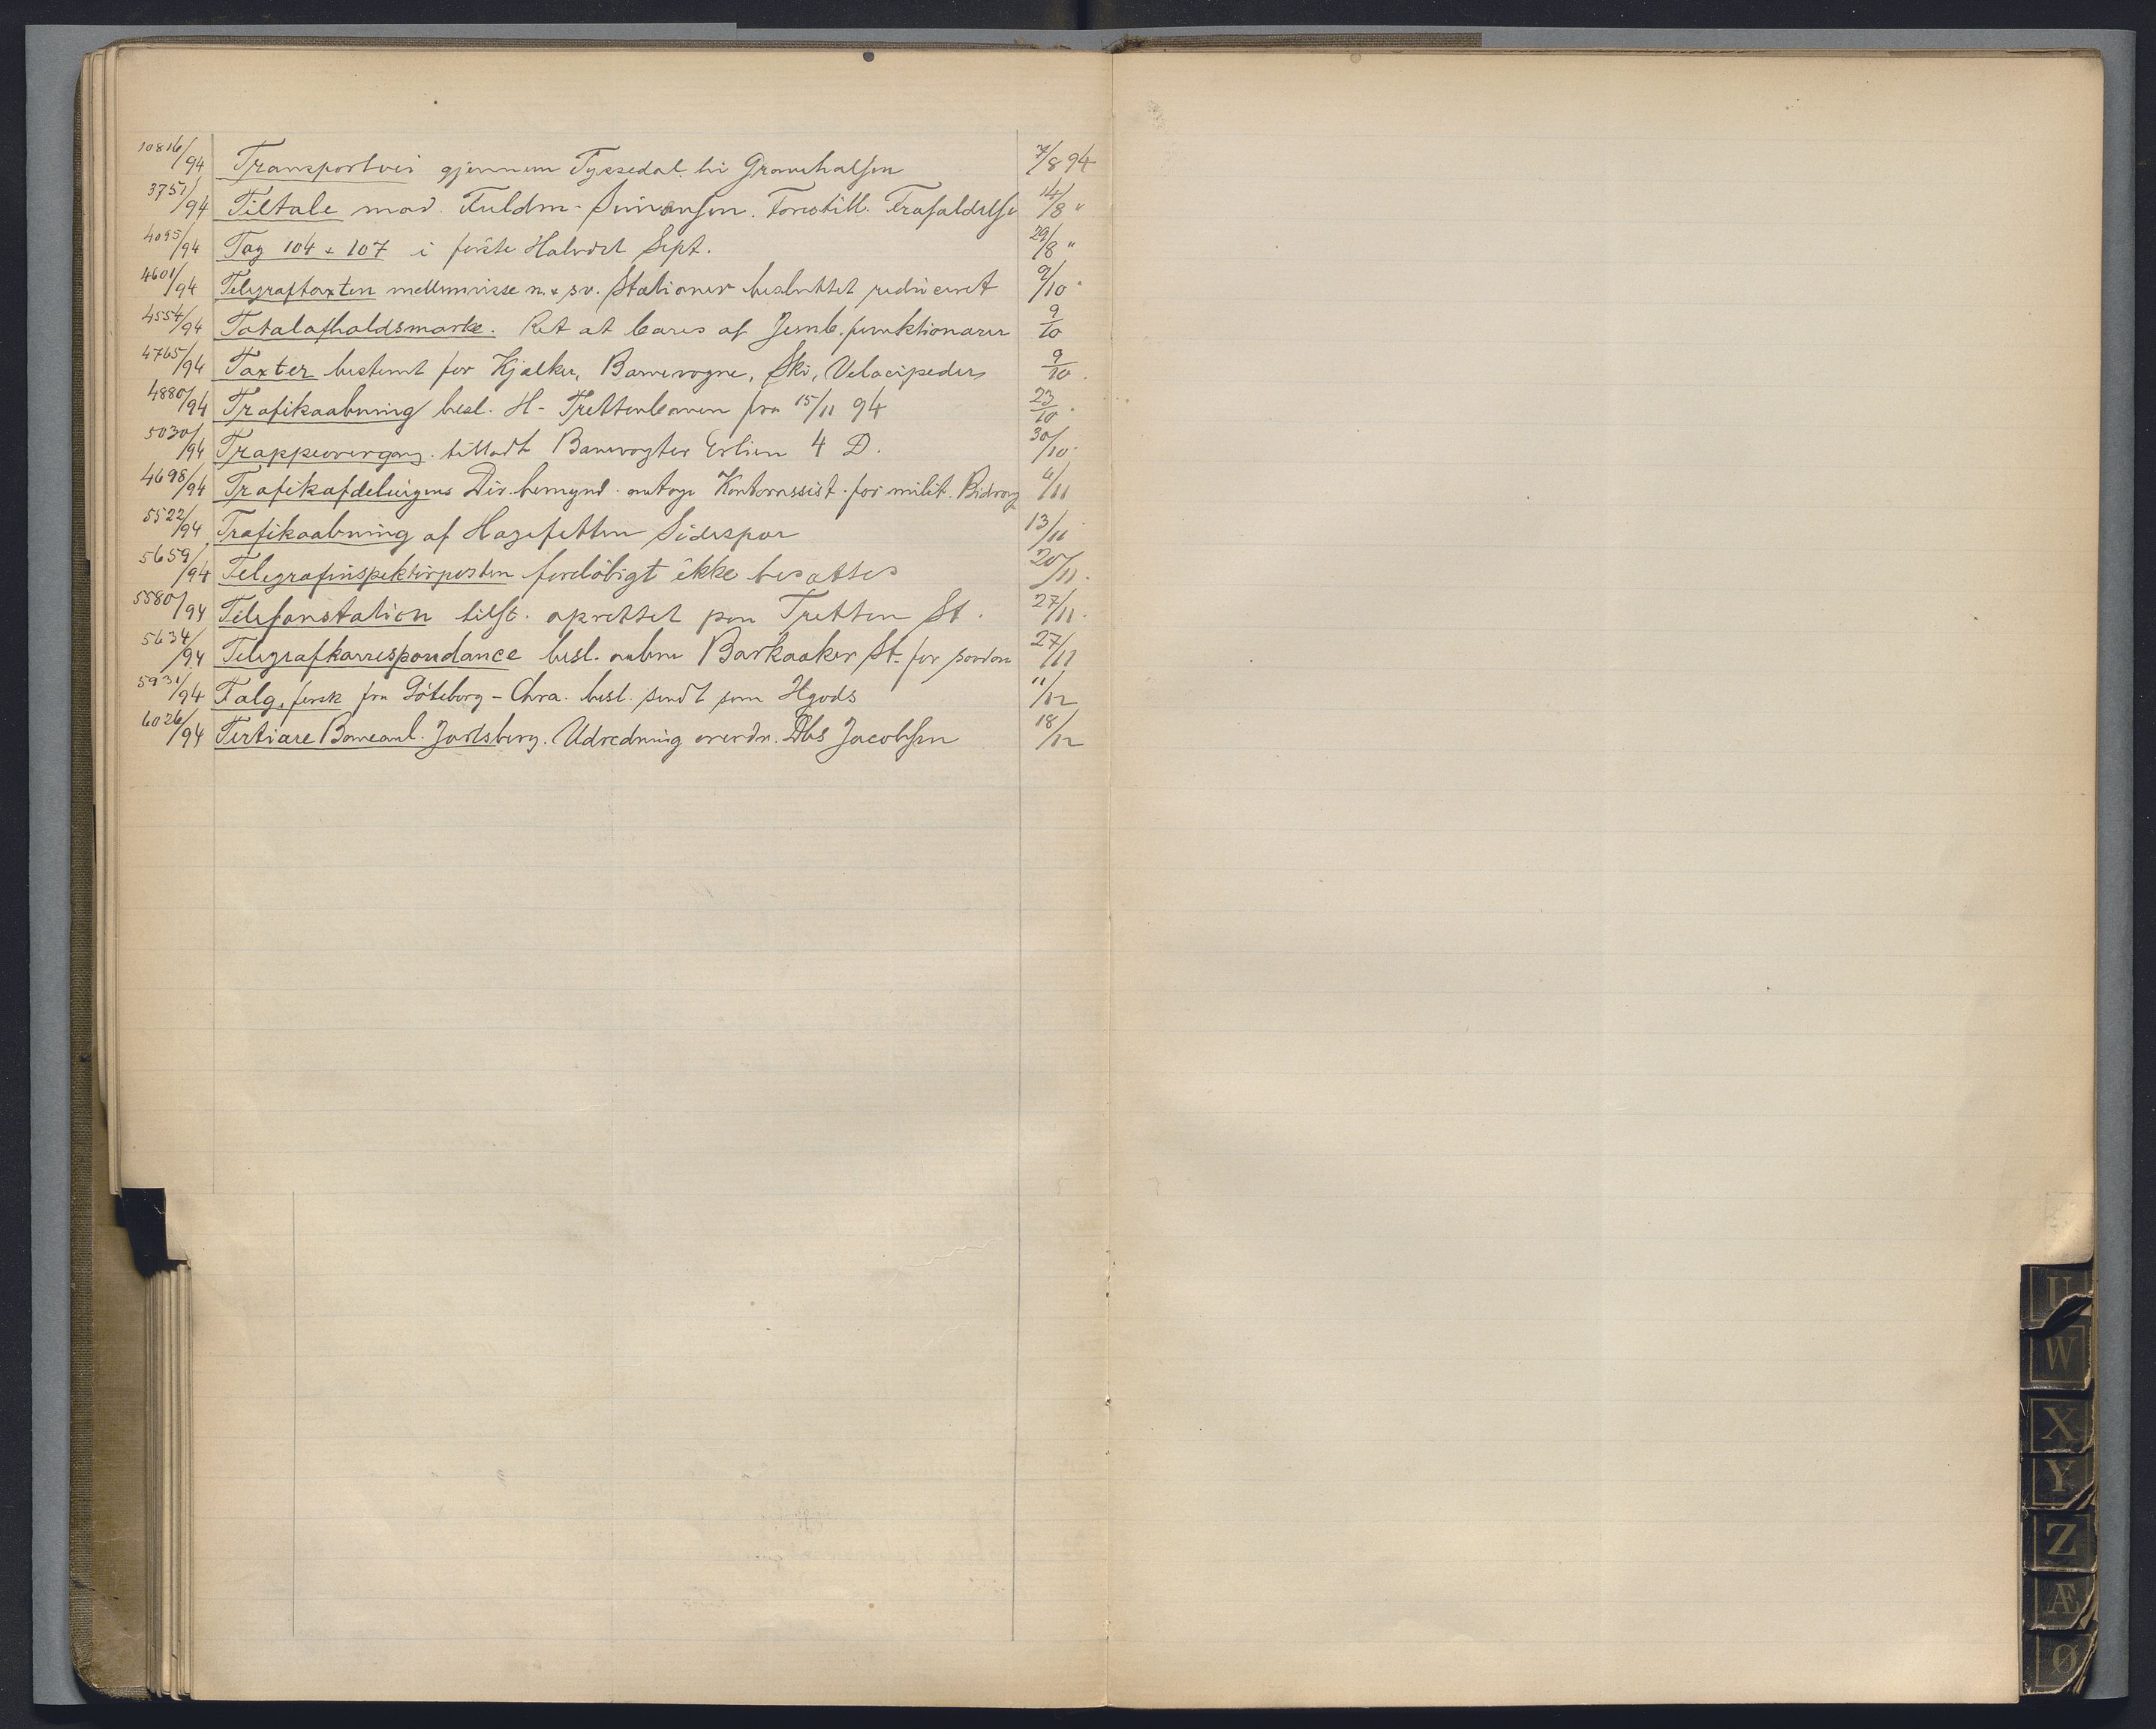 10816/94 Transportvei gjennem Tyssedal. til Gravehalsen 7/8 94
3751/94 Tiltale mod. Fuldm. Simensen. Forestill. Frafaldelse 14/8 "
4095/94 Tog 104 & 107 i første Halvdel Sept. 29/8 "
4601/94 Telegraftaxten mellem visse n. & sv. Stationer besluttet reduceret 9/10 "
4554/94 Totalafholdsmærke. Ret at bæres af Jernb. funktionærer 9/10
4765/94 Taxter bestemt for Kjælker, Barnevogne, Ski, Velocipeder 9/10.
4880/94 Trafikaabning besl. H- Trettenbanen fra 15/11 94 23/10.
5030/94 Trappeovergang. tilladt Banevogter Erlien 4 D. 30/10.
4698/94 Trafikafdelingens Dir. bemynd. antage Kontorassist. for milit. Bidrag 6/11
5522/94 Trafikaabning af Hagefetten Sidespor 13/11
5659/94 Telegrafinspektørposten foreløbigt ikke besættes 20/11.
5580/94 Telefonstation tilst. oprettet paa Tretten St. 27/11.
5634/94 Telegrafkorrespondance besl. aabne Barkaaker St. for 27/11
5931/94 Talg, fersk fra Göteborg - Chra. besl. sendt som Ilgods 11/12
6026/94 Tertiære Baneanl. Jarlsberg. Udredning overdr. Dbs Jacobsen 18/12
U
W
X
Y
Z
Æ
Ø